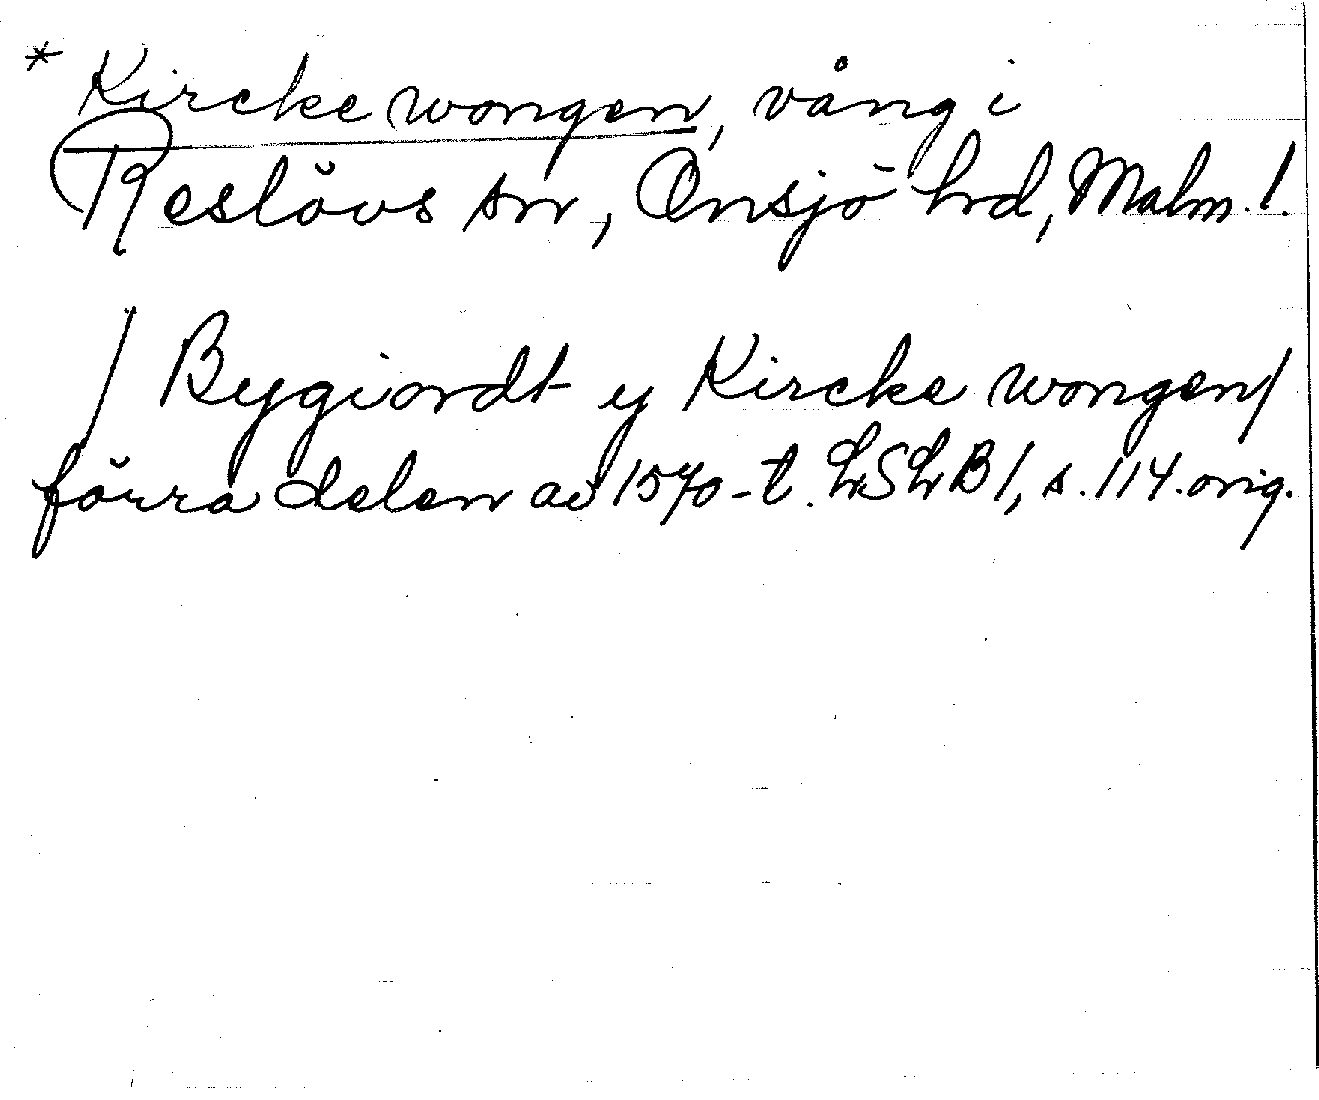 * Kircke wongen, vång i
Reslövs sn, Onsjö hrd, Malm. l.
/ Bygiordt y Kircke wongen/
förra delen av 1570-t. LSLB 1, s. 114. orig.